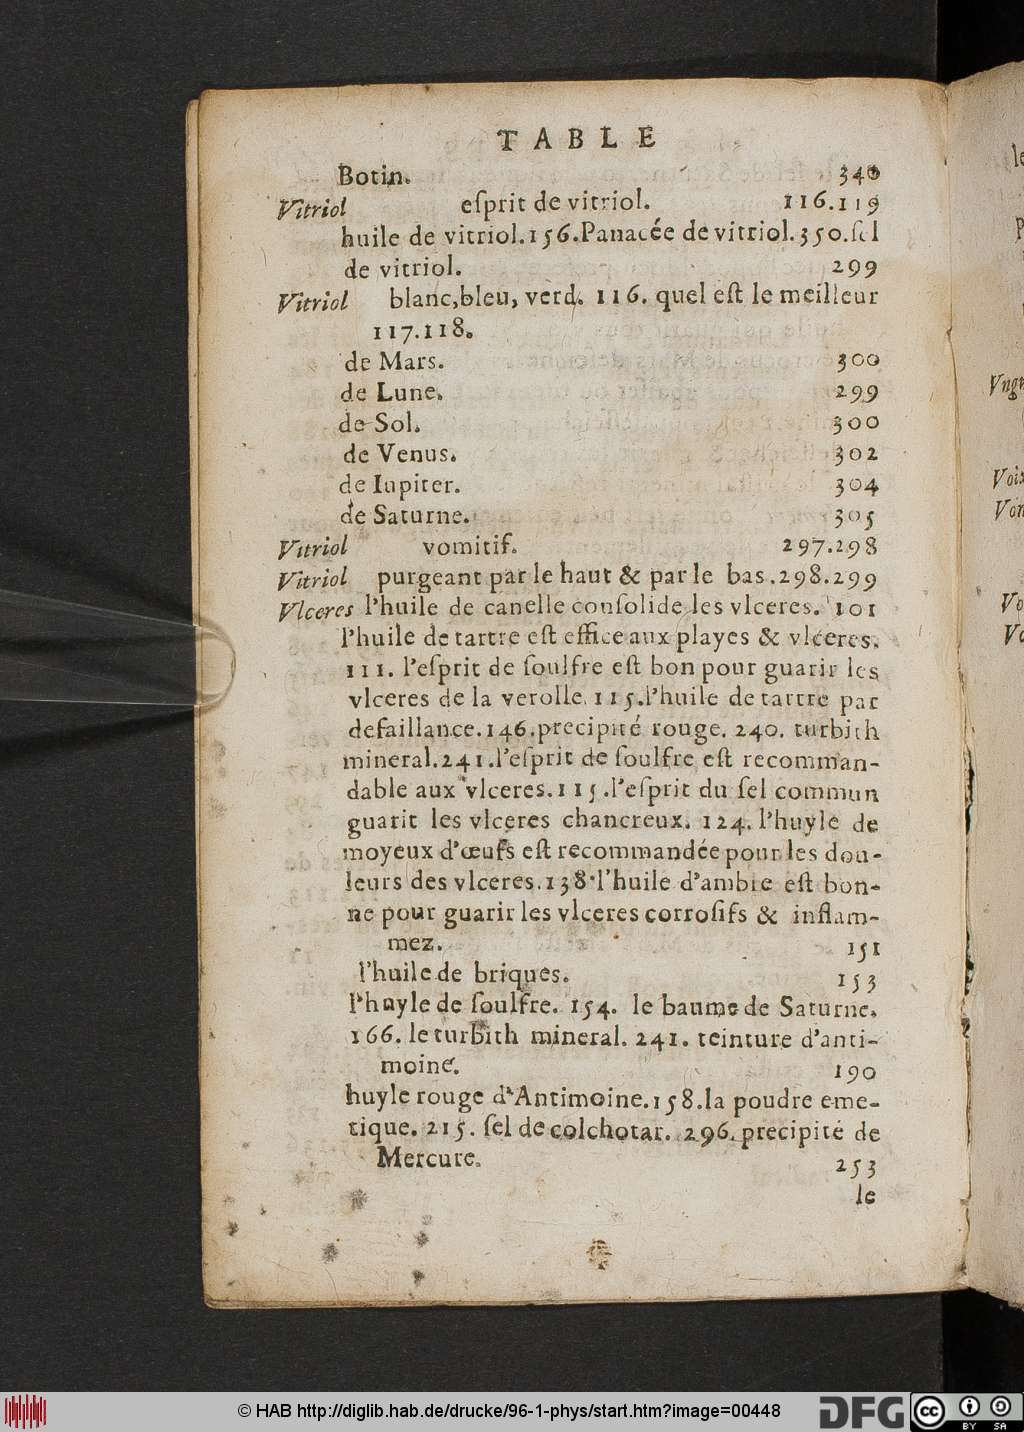 TABLE
Botin. 340
Vitriol esprit de vitriol. 116.119
huile de vitriol.156.Panacée de vitriol.350.sel
de vitriol. 299
Vitriol blanc,bleu, verd. 116. quel est le meilleur
117.118.
de Mars. 300
de Lune. 299
de Sol. 300
de Venus. 302
de Iupiter. 304
de Saturne. 305
Vitriol vomitif. 297.298
Vitriol purgeant par le haut & par le bas.298.299
Vlceres l'huile de canelle consolide les vlceres. 101
l'huile de tartre est efficeaux playes & vlceres.
111. l'esprit de soulfre est bon pour guarir les
vlceres de la verolle.115.l'huile de tartre par
defaillance.146.precipité rouge. 240. turbith
mineral.241.l'esprit de soulfre est recomman-
dable aux vlceres.115.l'esprit du sel commun
guarit les vlceres chancreux. 124. l'huyle de
moyeux d'œufs est recommandée pour les dou-
leurs des vlceres.138.l'huile d'ambre est bon-
ne pour guarir les vlceres corrosifs & inflam-
mez. 151
l'huile de briques. 153
l'huyle de soulfre. 154. le baume de Saturne.
166. le turbith mineral. 241. teinture d'anti-
moine. 190
huyle rouge d'Antimoine.158.la poudre eme-
tique. 215. sel de colchotar. 296. precipité de
Mercure. 253
le
© HAB http://diglib.hab.de/drucke/96-1-phys/start.htm?image=00448
DFG
cc BY SA